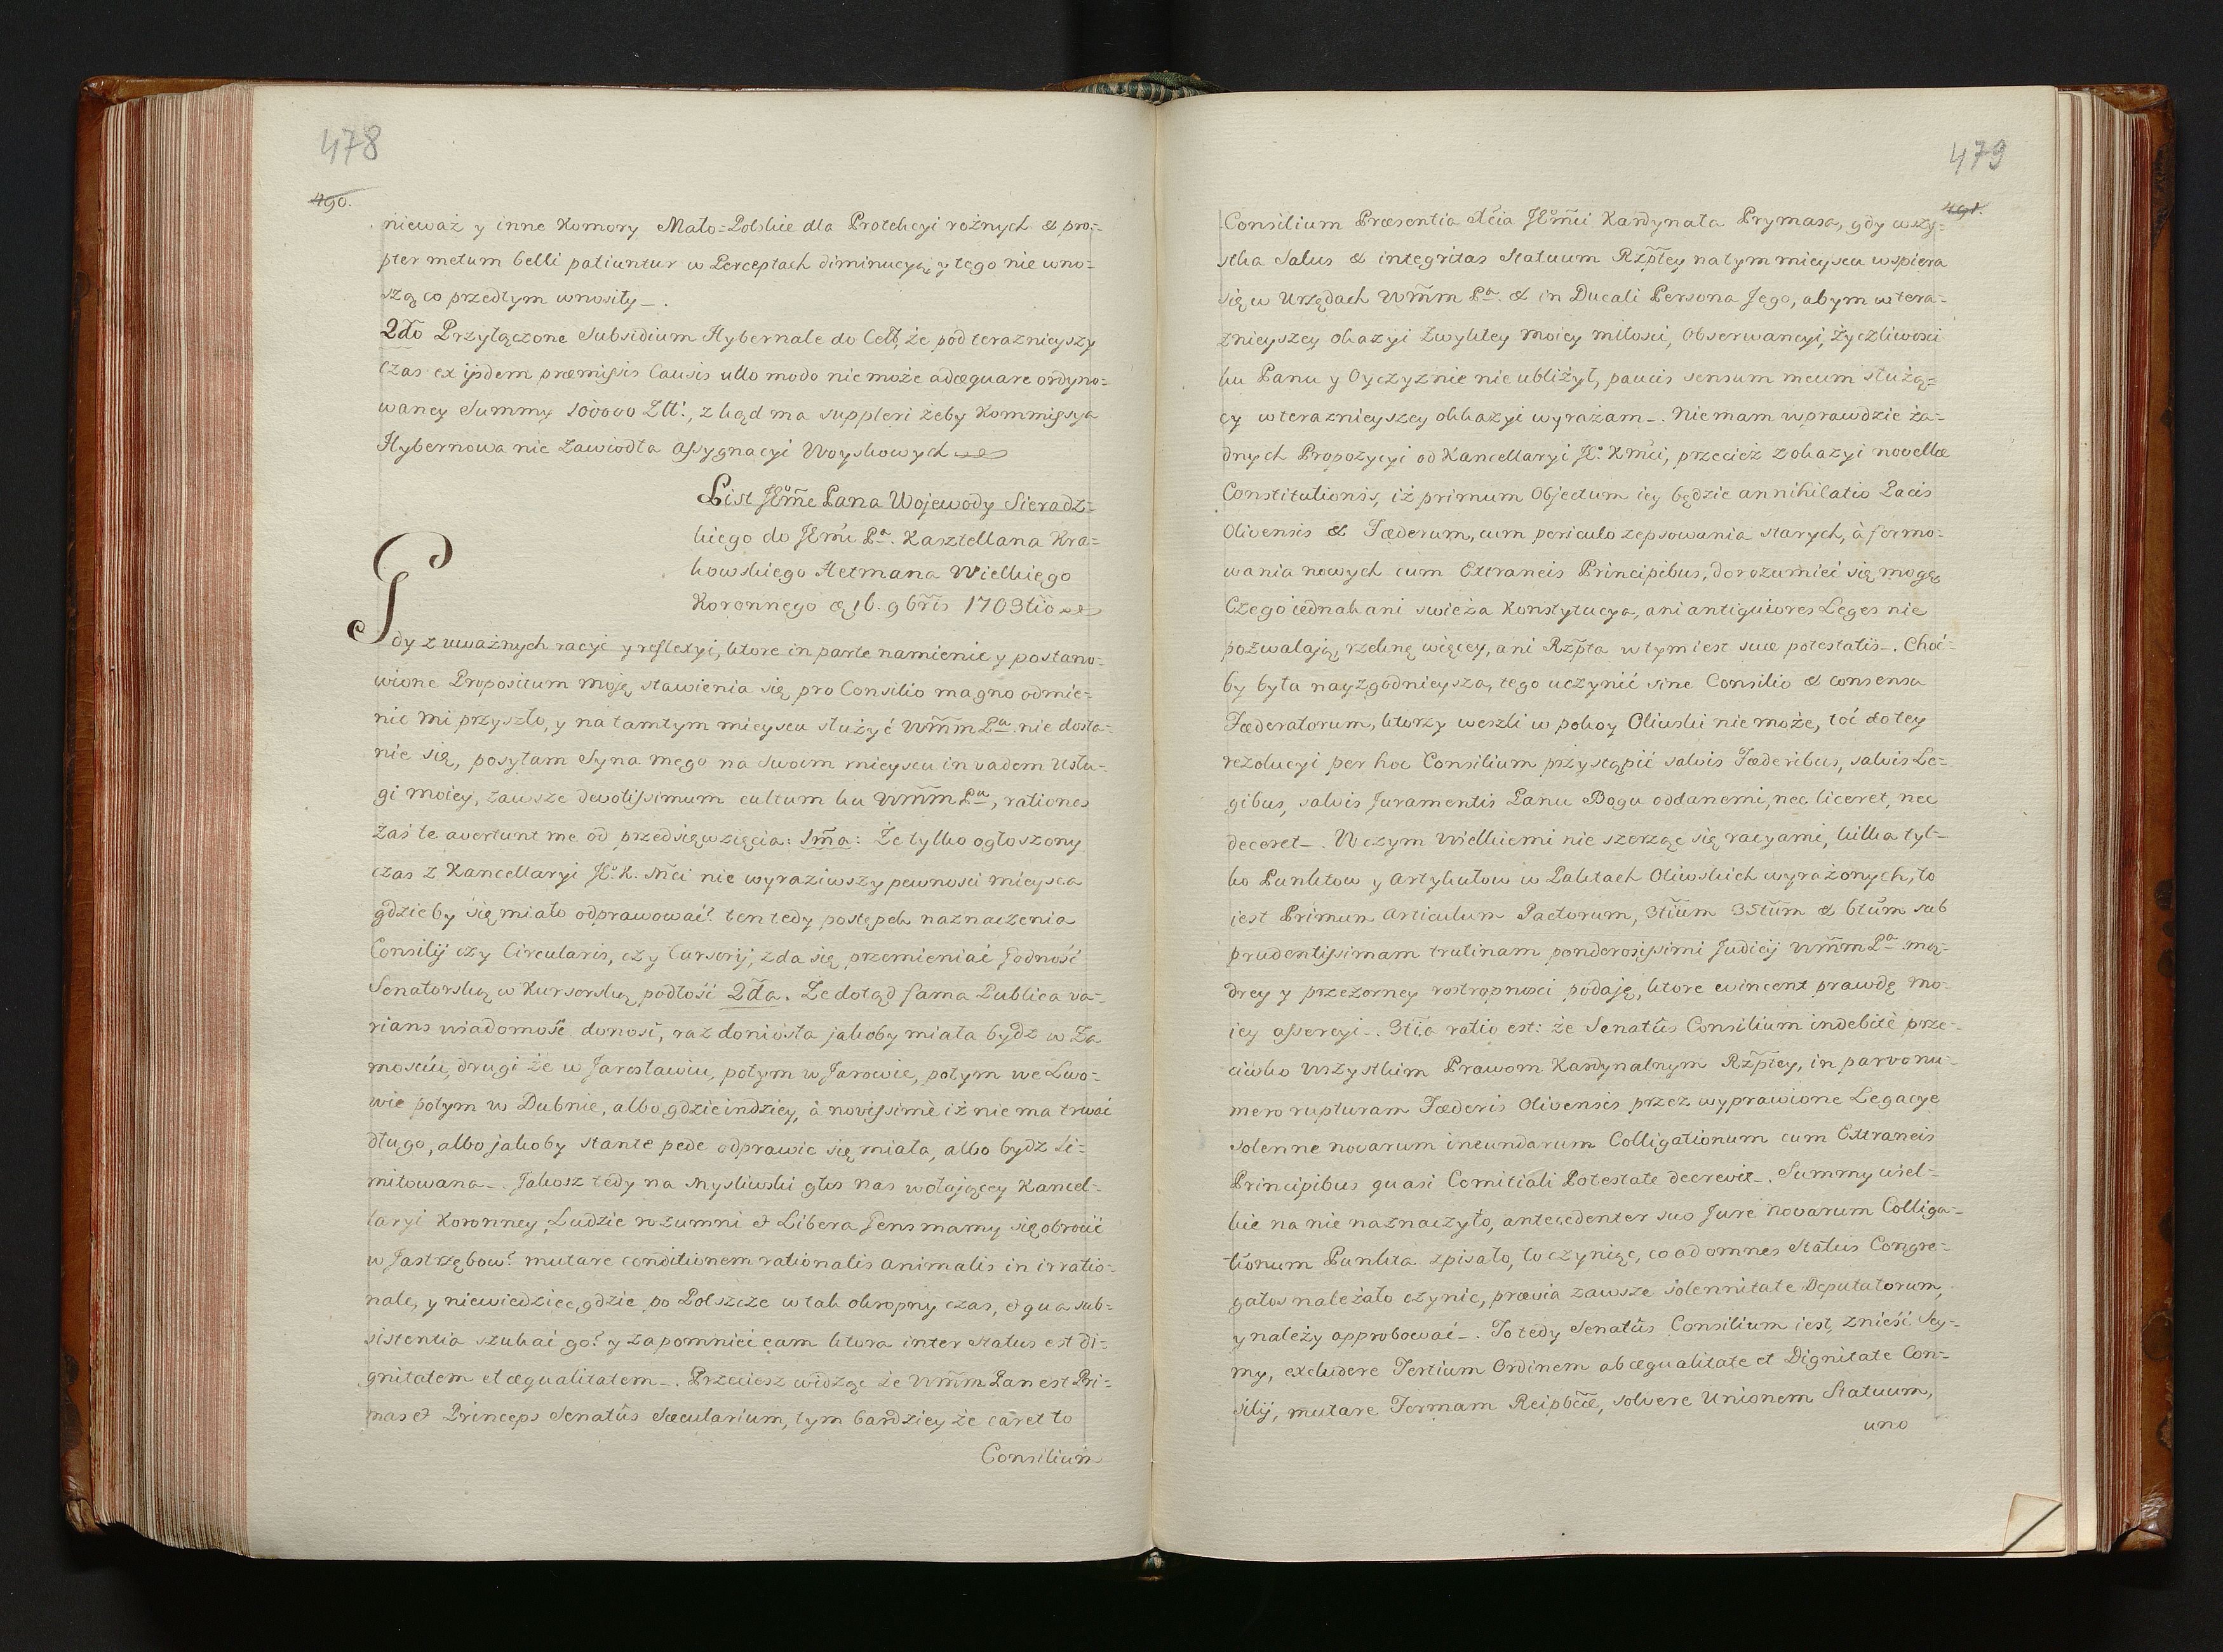 478
490.
nieważ y inne Komory Mało=Polskie dla Protekcyi rożnych & pro=
pter metum belli patiuntur w Perceptach diminucyą, y tego nie wno=
szą co przedtym wnosiły_.
2do Przyłączone Subsidium Hybernale do Cełł, że pod terazniejszy
Czas ex ijsdem præmissis Causis ullo modo nie może adæquare ordyno=
waney Summy 100000 Złł:, z kąd ma suppleri żeby Kommissya
Hybernowa nie zawiodła Assygnacyi Woyskowych
List JEmῆe Pana Wojewody Sieradz=
kiego do JEmci Pa. Kasztellana Kra=
kowskiego Hetmana Wielkiego
Koronnego æ 16. 9bris 1703tio
Gdy z uważnych racyi y reflexyi, ktore in parte namienię y postano=
wione Propositum moję stawienia się pro Consilio magno odmie=
nić mi przyszło, y na tamtym mieyscu służyć Wm̃m Pu. nie dosta=
nie się, posyłam Syna mego na swoim mieyscu in vadem Usłu=
gi moiey, zawsze devotissimum cultum ku Wm̃m Pu, rationes
zaś te avertunt me od przedsięwzięcia: 1ma: Że tylko ogłoszony
czas z Kancellaryi JEo. K. Mci nie wyraziwszy pewnosci mieysca
gdzieby się miało odprawować? ten tedy postępek naznaczenia
Consilij czy Circularis, czy Cursorij, zda się przemieniać Godność
Senatorską w Kursorską podłość 2da. Że dotąd fama Publica va=
rians wiadomość donosi, raz doniosła jakoby miała bydz w Za
mościu, drugi że w Jarosławiu, potym w Jarowie, potym we Lwo=
wie potym w Dubnie, albo gdzieindziey, à novissimè iż nie ma trwać
długo, albo jakoby stante pede odprawić się miała, albo bydz li=
mitowana_. Jakosz tedy na Mysliwski głos nas wołającey Kancel=
laryi Koronney, Ludzie rozumni & Libera Gens mamy się obroćić
w Jastrzębow? mutare conditionem rationalis animalis in irratio=
nale, y niewiedzieć, gdzie po Polszcze w tak okropny czas, & qua sub=
sistentia szukać go? y zapomnieć eam ktora inter Status est di=
gnitatem et æqualitatem_. Przeciesz widząc że Wm̃m Pan est Pri=
mas & Princeps Senatûs Sæcularium, tym bardziey że caret to
Consilium
479
491.
Consilium Præsentia Xcia JEmci Kardynała Prymasa, gdy wszy=
stka Salus & integritas Statuum Rzp̃ltey na tym mieyscu wspiera
się w Urzędach Wm̃m Pa. & in Ducali Persona Jego, abym w tera=
znieyszey okazyi zwykłey moiey miłosci, Obserwancyi, Życzliwosci
ku Panu y Oyczyznie nie ubliżył, paucis sensum meum służą=
cy w teraznieyszey okkazyi wyrażam_. Nie mam wprawdzie ża=
dnych Propozycyi od Kancellaryi JEo. Kmci, przecież z okazyi novellæ
Constitutionis, iż primum Objectum iey będzie annihilatio Pacis
Olivensis & Fæderum, cum periculo zepsowania starych, à formo=
wania nowych cum Extraneis Principibus, dorozumieć się mogę,
Czego iednak ani swieża Konstytucya, ani antiquiores Leges nie
pozwalają, rzekнę więcey, ani Rzp̃ta w tym iest suæ potestatis_. Choć=
by była nayzgodnieysza, tego uczynić sine Consilio & consensu
Fæderatorum, ktorzy weszli w pokoy Oliwski nie może, toć do tey
rezolucyi per hoc Consilium przystąpić salvis Fæderibus, salvis Le=
gibus, salvis Juramentis Panu Bogu oddanemi, nec liceret, nec
deceret_. W czym wielkiemi nie szerząc się racyami, kilka tyl=
ko Punktow y Artykułow w Paktach Oliwskich wyrażonych, to
iest Primum Articulum Pactorum, 3tium 35tum & 6tum sub
prudentissimam trutinam ponderosissimi Judicij Wm̃m Pa mą=
drey y przezorney rostropnosci podaję, ktore evincent prawdę mo=
iey assercyi_. 3tia ratio est: że Senatûs Consilium indebitè prze=
ciwko wszystkim Prawom Kardynalnym Rzp̃tey, in parvo nu=
mero rupturam Fæderis Olivensis przez wyprawione Legacye
solenne novarum ineundarum Colligationum cum Extraneis
Principibus quasi Comitiali Potestate decrevit_. Summy wiel=
kie na nie naznaczyło, antecedenter suo Jure novarum Colliga=
tionum Punkta spisało, to czyniąc, co ad omnes Status Congre=
gatos należało czynić, prævia zawsze solennitate Deputatorum,
y należy approbować_. To tedy Senatûs Consilium iest, znieść Sey=
my, excludere Tertium Ordinem ab æqualitate et Dignitate Con=
silij, mutare Formam Reipb̃cæ, solvere Unionem Statuum,
uno